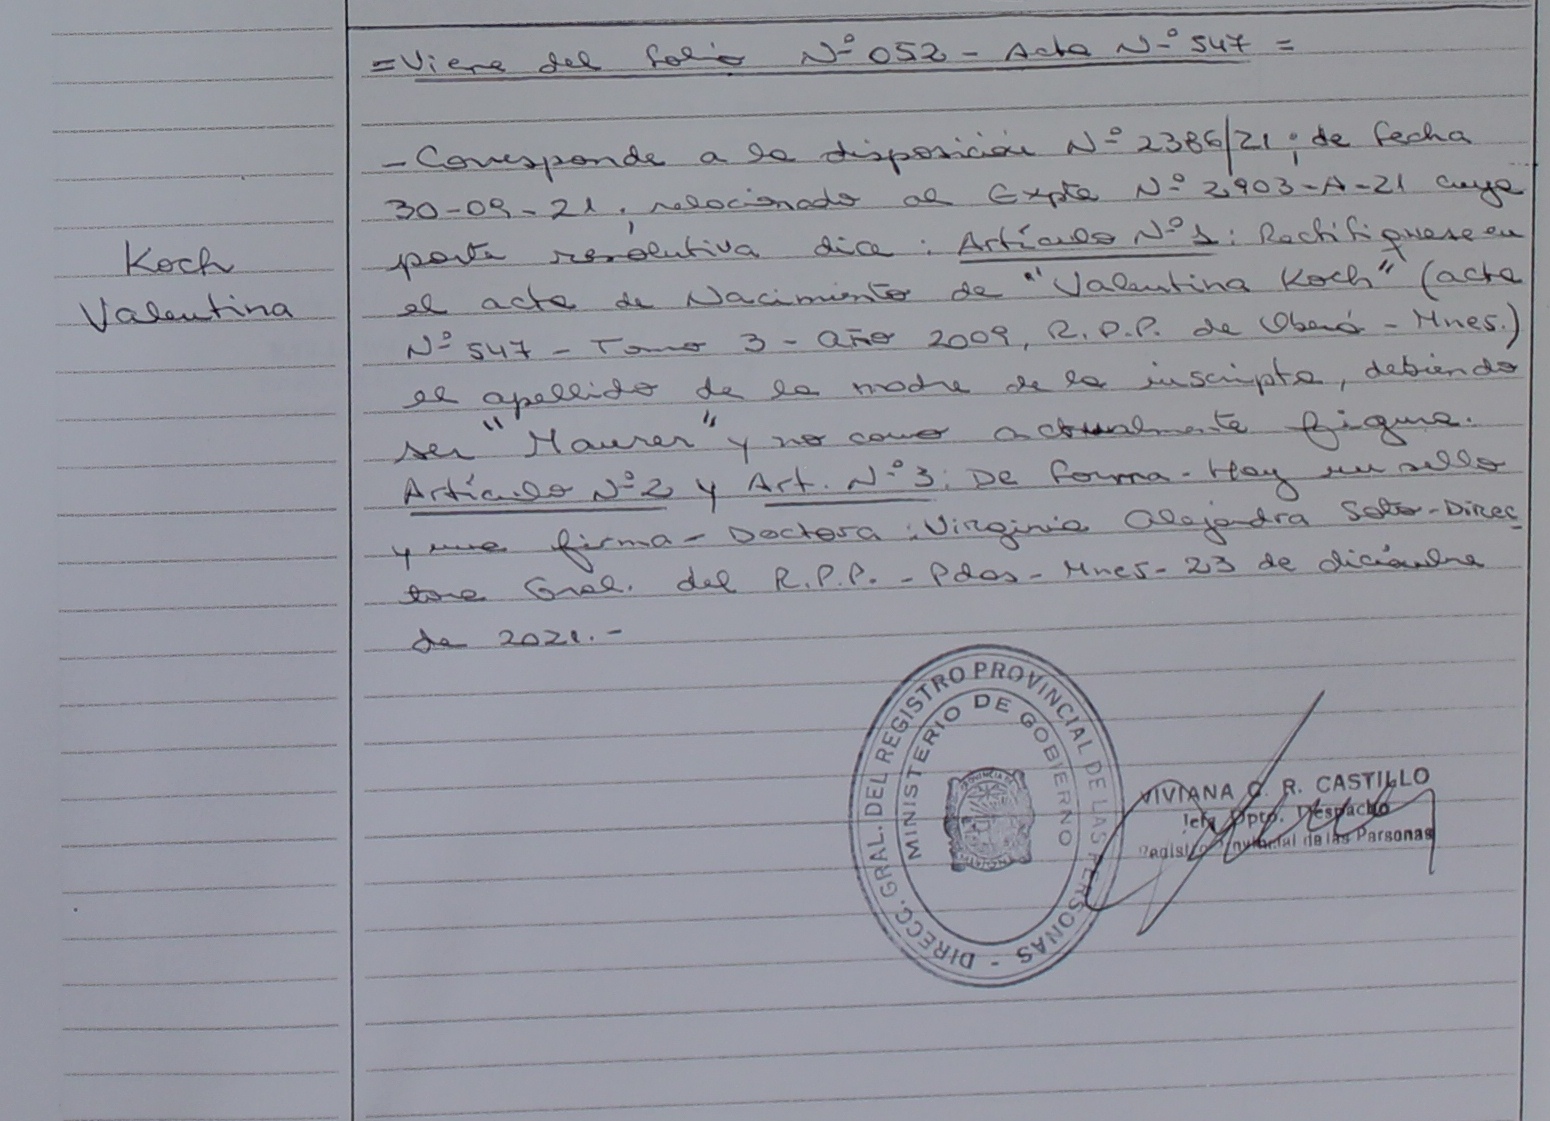 =Viene del folio Nº 052 - Acta Nº 547 =
- Corresponde a la disposición Nº 2386/21; de fecha
30-09-21, relacionado al Expte Nº 2903-A-21 cuya
parte resolutiva dice: Artículo Nº 1: Rectifiquese en
Koch
Valentina
el acta de Nacimiento de "Valentina Koch" (acta
Nº 547 - Tomo 3 - año 2009, R.P.P. de Oberá - Mnes.)
el apellido de la madre de la inscripta, debiendo
ser "Maurer" y no como actualmente figura.
Artículo Nº 2 y Art. Nº 3: De forma - Hay un sello
y una firma - Doctora: Virginia Alejandra Soto - Direc
tora Gral. del R.P.P. - Pdas - Mnes - 23 de diciembre
de 2021.-
DIRECC. GRAL. DEL REGISTRO PROVINCIAL DE LAS PERSONAS -
MINISTERIO DE GOBIERNO
VIVIANA G. R. CASTILLO
Jefa Dpto. Despacho
Registro Provincial de las Personas